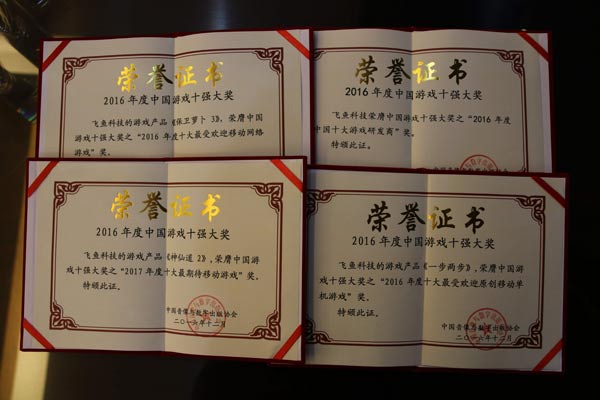 荣誉证书
2016 年度中国游戏十强大奖
飞鱼科技的游戏产品《保卫萝卜 3》，荣膺中国
游戏十强大奖之“2016 年度十大最受欢迎移动网络
游戏”奖。
荣誉证书
2016 年度中国游戏十强大奖
飞鱼科技荣膺中国游戏十强大奖之“2016 年度
中国十大游戏研发商”奖。
特颁此证。
荣誉证书
2016 年度中国游戏十强大奖
飞鱼科技的游戏产品《神仙道 2》，荣膺中国游
戏十强大奖之“2017 年度十大最期待移动游戏”奖。
特颁此证。
中国音像与数字出版协会
二〇一六年十二月
荣誉证书
2016 年度中国游戏十强大奖
飞鱼科技的游戏产品《一步两步》，荣膺中国游
戏十强大奖之“2016 年度十大最受欢迎原创移动单
机游戏”奖。
特颁此证。
中国音像与数字出版协会
二〇一六年十二月